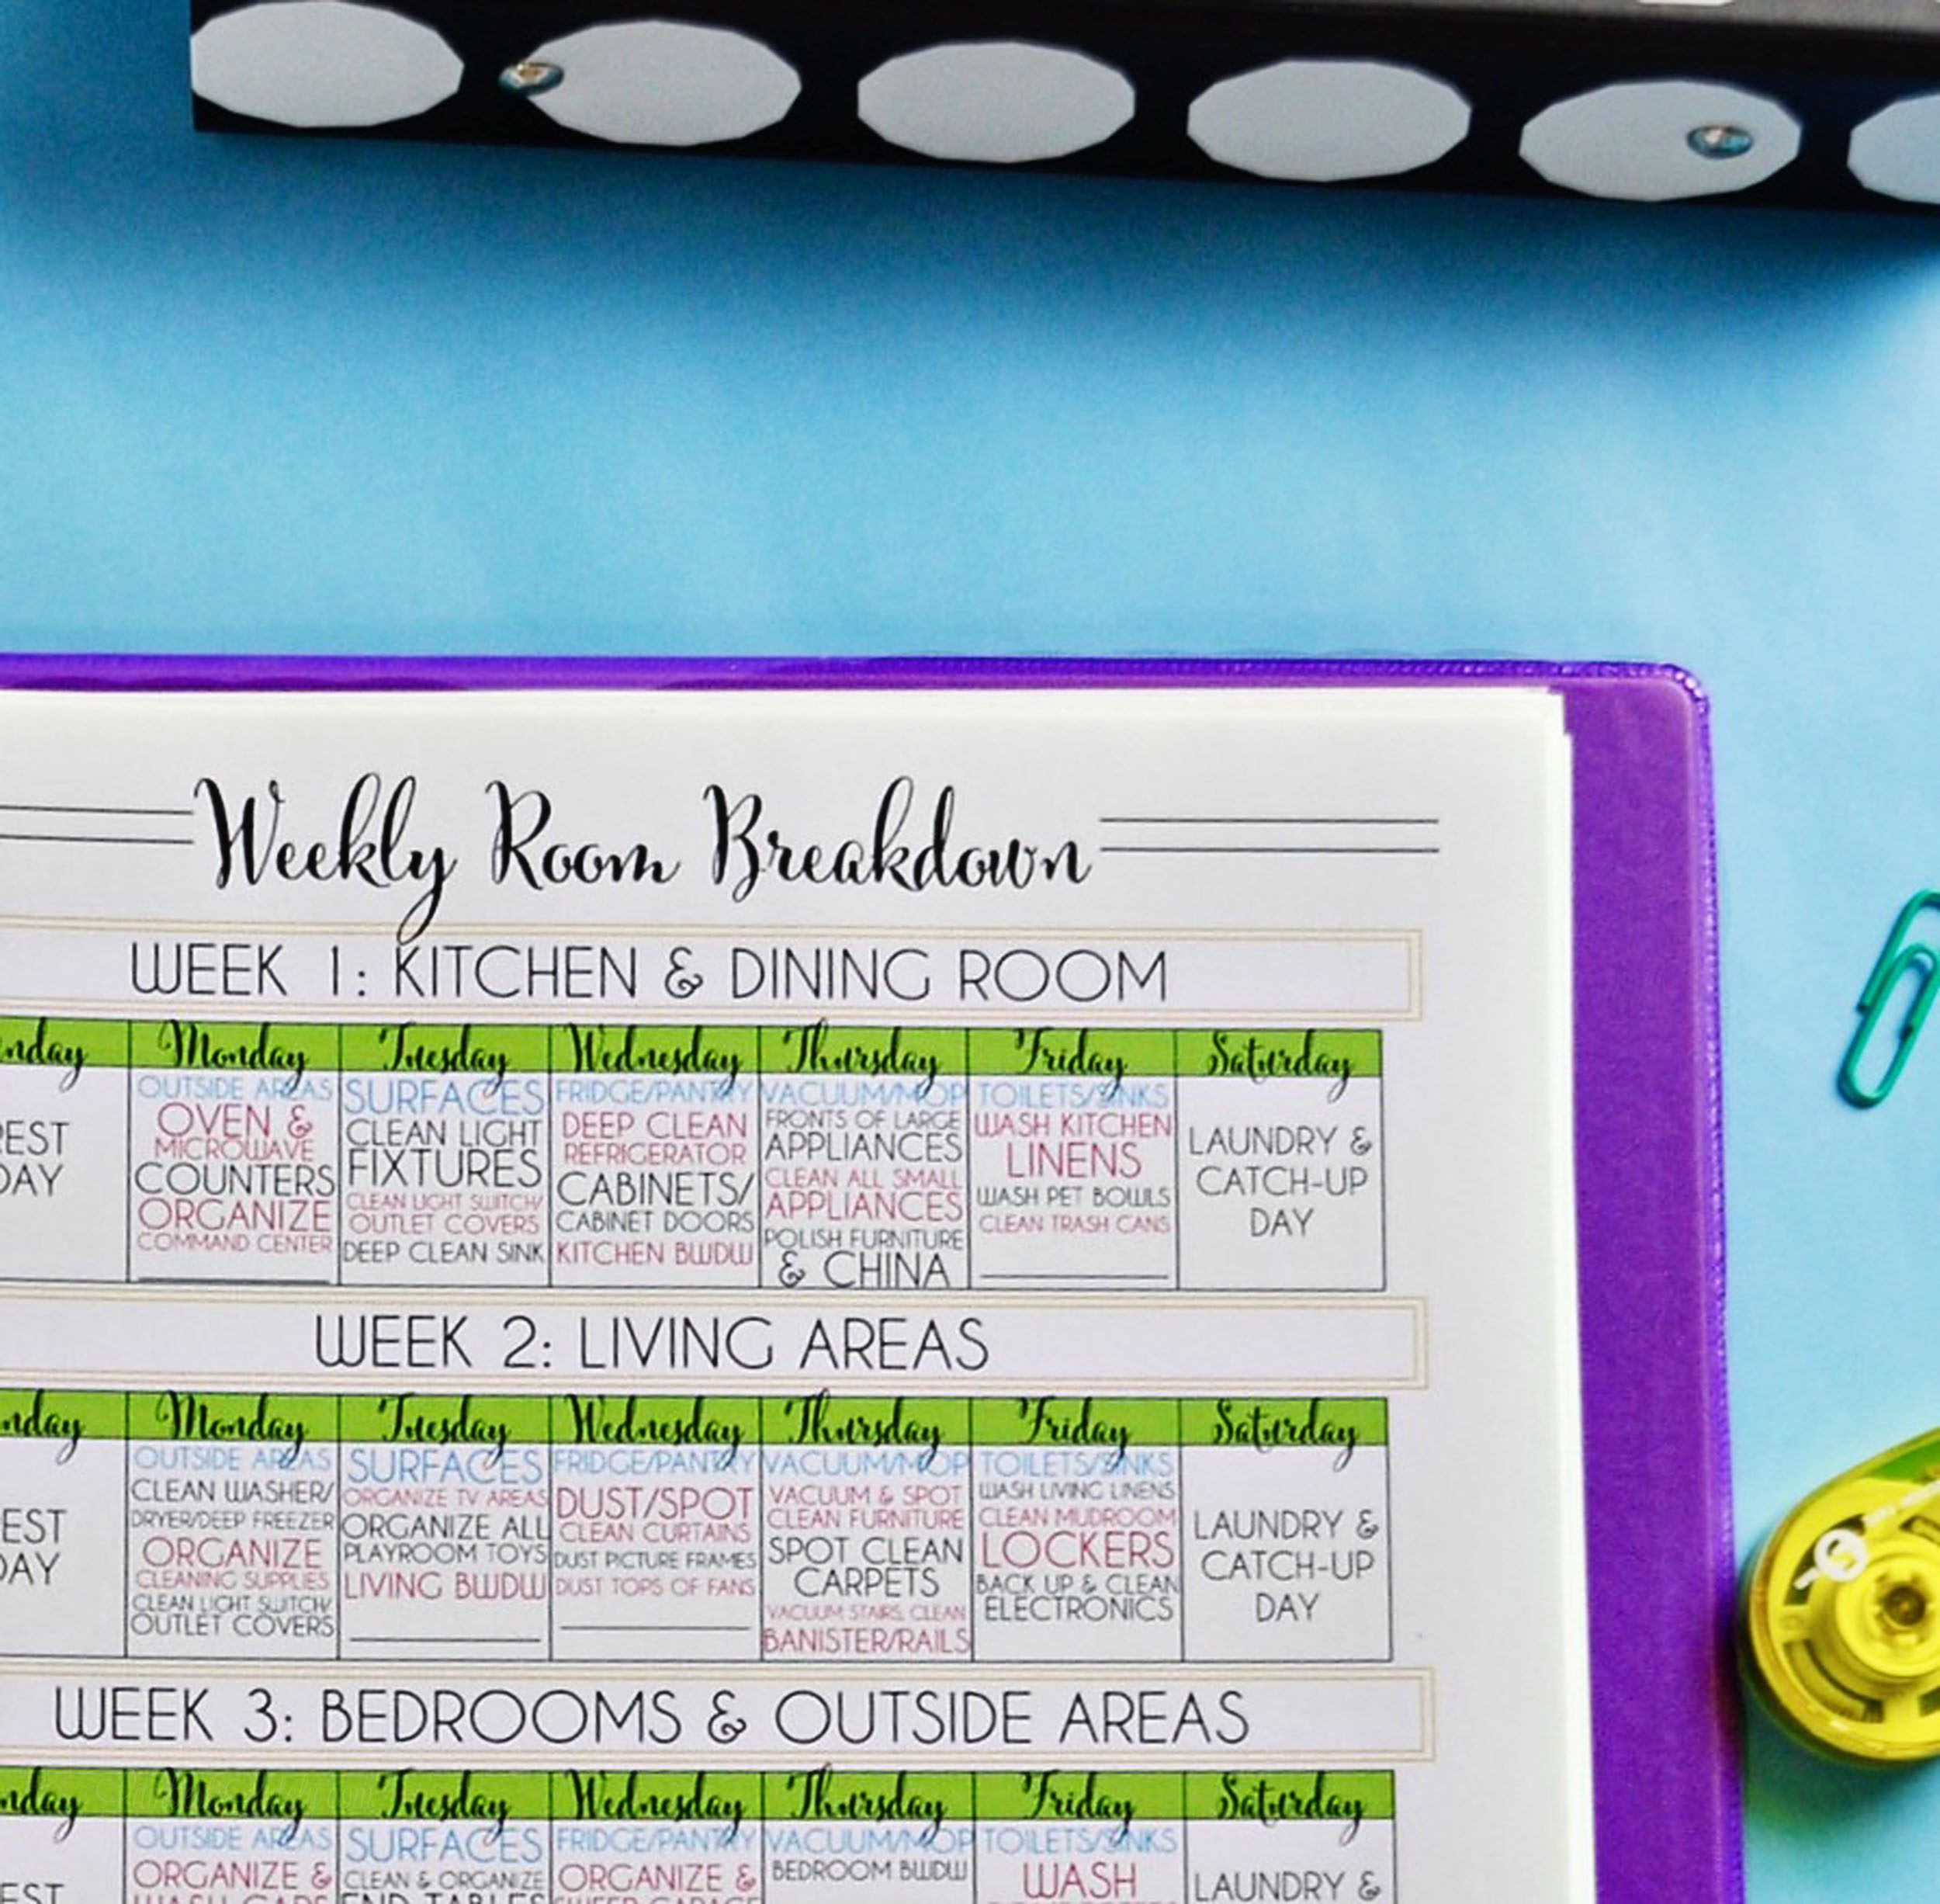 Weekly Room Breakdown
WEEK 1: KITCHEN & DINING ROOM
nday Monday Tuesday Wednesday Thursday Friday Saturday
EST
DAY
OUTSIDE AREAS
OVEN &
MICROWAVE
COUNTERS
ORGANIZE
COMMAND CENTER
SURFACES
CLEAN LIGHT
FIXTURES
CLEAN LIGHT SWITCH/
OUTLET COVERS
DEEP CLEAN SINK
FRIDGE/PANTRY
DEEP CLEAN
REFRIGERATOR
CABINETS/
CABINET DOORS
KITCHEN BWDW
VACUUM/MOP
FRONTS OF LARGE
APPLIANCES
CLEAN ALL SMALL
APPLIANCES
POLISH FURNITURE
& CHINA
TOILETS/SINKS
WASH KITCHEN
LINENS
WASH PET BOWLS
CLEAN TRASH CANS
LAUNDRY &
CATCH-UP
DAY
WEEK 2: LIVING AREAS
nday Monday Tuesday Wednesday Thursday Friday Saturday
EST
DAY
OUTSIDE AREAS
CLEAN WASHER/
DRYER/DEEP FREEZER
ORGANIZE
CLEANING SUPPLIES
CLEAN LIGHT SWITCH/
OUTLET COVERS
SURFACES
ORGANIZE TV AREAS
ORGANIZE ALL
PLAYROOM TOYS
LIVING BWDW
FRIDGE/PANTRY
DUST/SPOT
CLEAN CURTAINS
DUST PICTURE FRAMES
DUST TOPS OF FANS
VACUUM/MOP
VACUUM & SPOT
CLEAN FURNITURE
SPOT CLEAN
CARPETS
VACUUM STAIRS, CLEAN
BANISTER/RAILS
TOILETS/SINKS
WASH LIVING LINENS
CLEAN MUDROOM
LOCKERS
BACK UP & CLEAN
ELECTRONICS
LAUNDRY &
CATCH-UP
DAY
WEEK 3: BEDROOMS & OUTSIDE AREAS
nday Monday Tuesday Wednesday Thursday Friday Saturday
EST
OUTSIDE AREAS
ORGANIZE &
SURFACES
CLEAN & ORGANIZE
END TABLES
FRIDGE/PANTRY
ORGANIZE &
VACUUM/MOP
BEDROOM BWDW
TOILETS/SINKS
WASH
LAUNDRY &